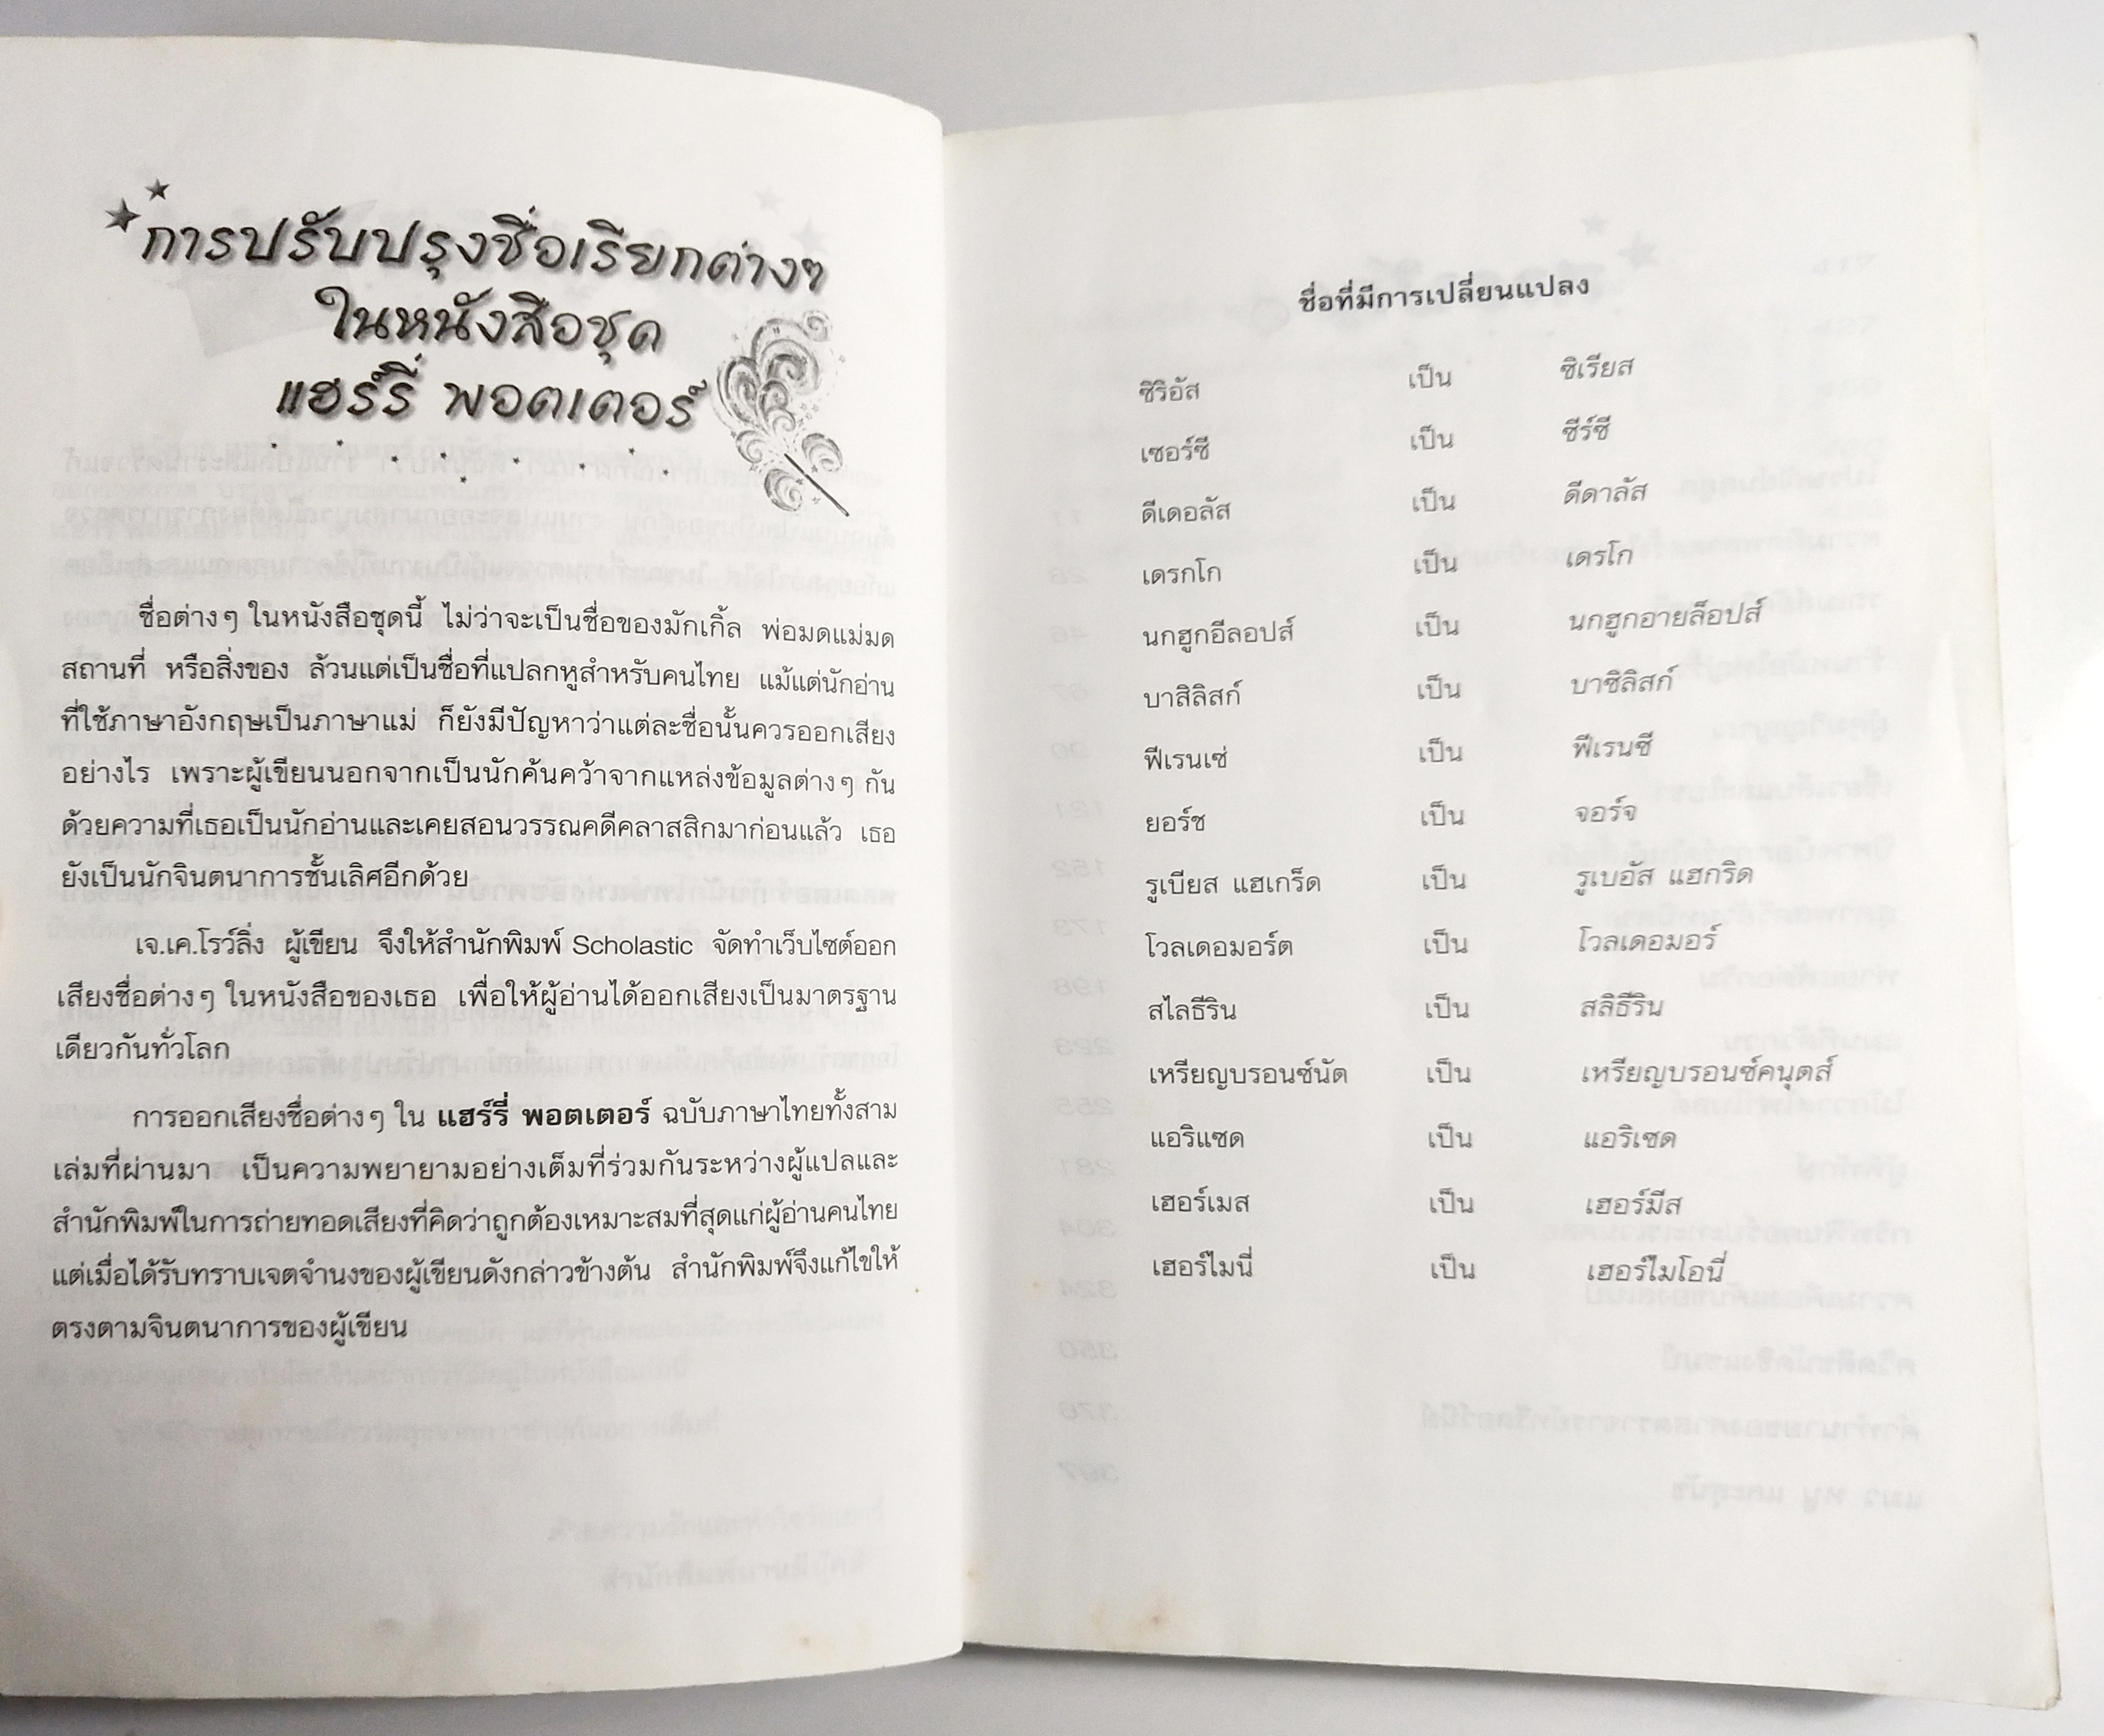 การปรับปรุงชื่อเรียกต่างๆ
ในหนังสือชุด
แฮร์รี่ พอตเตอร์
ชื่อต่างๆ ในหนังสือชุดนี้ ไม่ว่าจะเป็นชื่อของมักเกิ้ล พ่อมดแม่มด
สถานที่ หรือสิ่งของ ล้วนแต่เป็นชื่อที่แปลกหูสำหรับคนไทย แม้แต่นักอ่าน
ที่ใช้ภาษาอังกฤษเป็นภาษาแม่ ก็ยังมีปัญหาว่าแต่ละชื่อนั้นควรออกเสียง
อย่างไร เพราะผู้เขียนนอกจากเป็นนักค้นคว้าจากแหล่งข้อมูลต่างๆ กัน
ด้วยความที่เธอเป็นนักอ่านและเคยสอนวรรณคดีคลาสสิกมาก่อนแล้ว เธอ
ยังเป็นนักจินตนาการชั้นเลิศอีกด้วย
เจ.เค.โรว์ลิ่ง ผู้เขียน จึงให้สำนักพิมพ์ Scholastic จัดทำเว็บไซต์ออก
เสียงชื่อต่างๆ ในหนังสือของเธอ เพื่อให้ผู้อ่านได้ออกเสียงเป็นมาตรฐาน
เดียวกันทั่วโลก
การออกเสียงชื่อต่างๆ ใน แฮร์รี่ พอตเตอร์ ฉบับภาษาไทยทั้งสาม
เล่มที่ผ่านมา เป็นความพยายามอย่างเต็มที่ร่วมกันระหว่างผู้แปลและ
สำนักพิมพ์ในการถ่ายทอดเสียงที่คิดว่าถูกต้องเหมาะสมที่สุดแก่ผู้อ่านคนไทย
แต่เมื่อได้รับทราบเจตจำนงของผู้เขียนดังกล่าวข้างต้น สำนักพิมพ์จึงแก้ไขให้
ตรงตามจินตนาการของผู้เขียน
ชื่อที่มีการเปลี่ยนแปลง
ซิริอัส เป็น ซิเรียส
เซอร์ซี เป็น ซีร์ซี
ดีเดอลัส เป็น ดีดาลัส
เดรกโก เป็น เดรโก
นกฮูกอีลอปส์ เป็น นกฮูกอายล็อปส์
บาสิลิสก์ เป็น บาซิลิสก์
ฟีเรนเซ่ เป็น ฟีเรนซี
ยอร์ช เป็น จอร์จ
รูเบียส แฮเกร็ด เป็น รูเบอัส แฮกริด
โวลเดอมอร์ต เป็น โวลเดอมอร์
สไลธีริน เป็น สลิธีริน
เหรียญบรอนซ์นัด เป็น เหรียญบรอนซ์คนุตส์
แอริแซด เป็น แอริเซด
เฮอร์เมส เป็น เฮอร์มีส
เฮอร์ไมนี่ เป็น เฮอร์ไมโอนี่